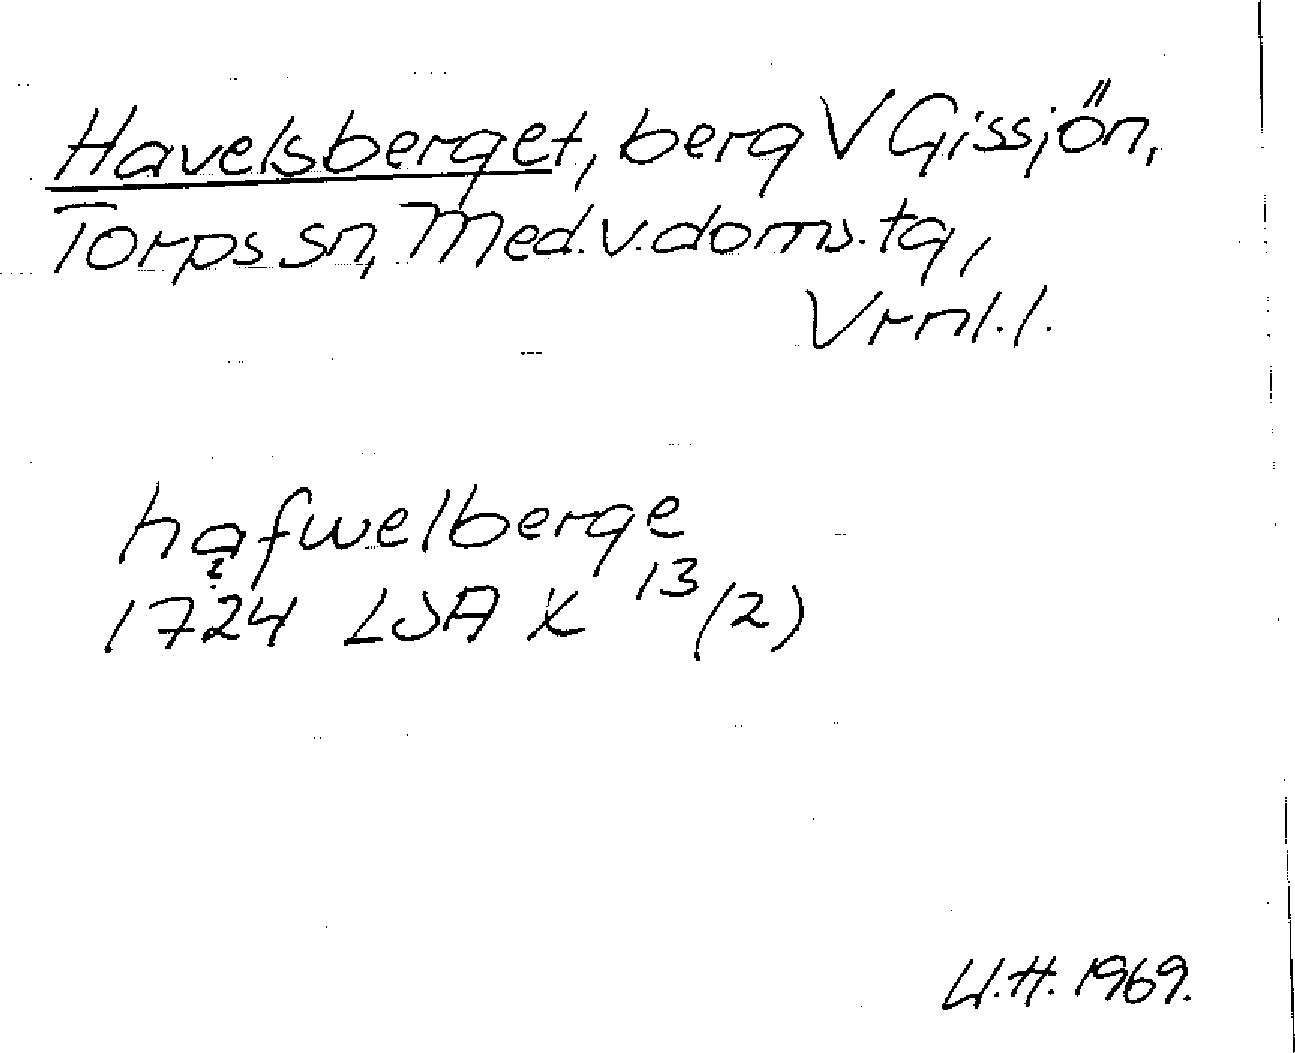 Havelsberget, berg V Gissjön,
Torps sn, Med.v.doms.tg,
Vrnl.l.
hafwelberge
?
1724 LSA X 13/(2)
U.H. 1969.